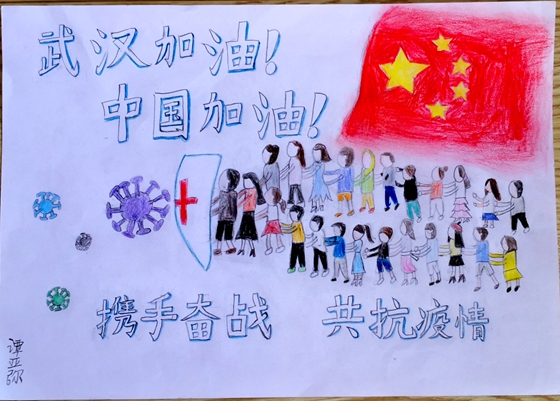 武汉加油!
中国加油!
携手奋战 共抗疫情
谭亚弥